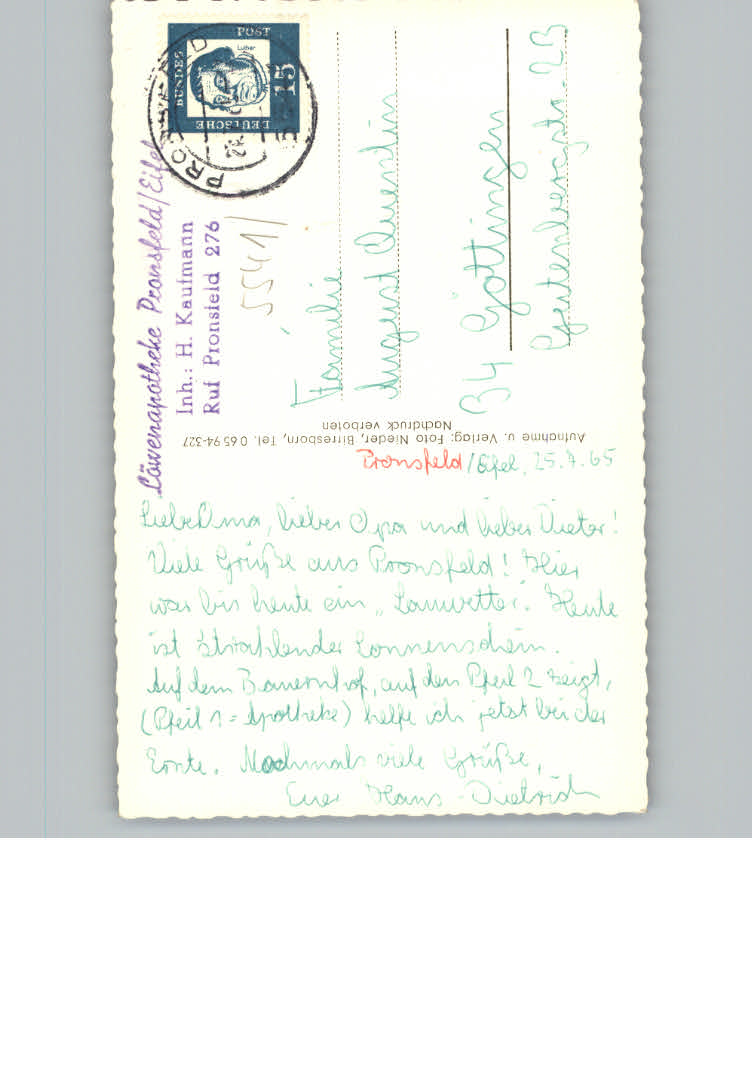 Löwenapotheke Pronsfeld/Eifel
Inh.: H. Kaufmann
Ruf Pronsfeld 276
5541/
DEUTSCHE
BUNDES
POST
15
Luther
PRONSFELD
Familie
August Quentin
34 Göttingen
Gutenbergstr. 23
Aufnahme u. Verlag: Foto Nieder, Birresborn, Tel. 0 65 94-327
Nachdruck verboten
Pronsfeld/Eifel, 25.7.65
Liebe Oma, lieber Opa und lieber Dieter!
Viele Grüße aus Pronsfeld! Hier
war bis heute ein „Sauwetter". Heute
ist strahlender Sonnenschein.
Auf dem Bauernhof, auf den Pfeil 2 zeigt,
(Pfeil 1 = Apotheke) helfe ich jetzt bei der
Ernte. Nochmals viele Grüße,
Euer Hans-Dietrich